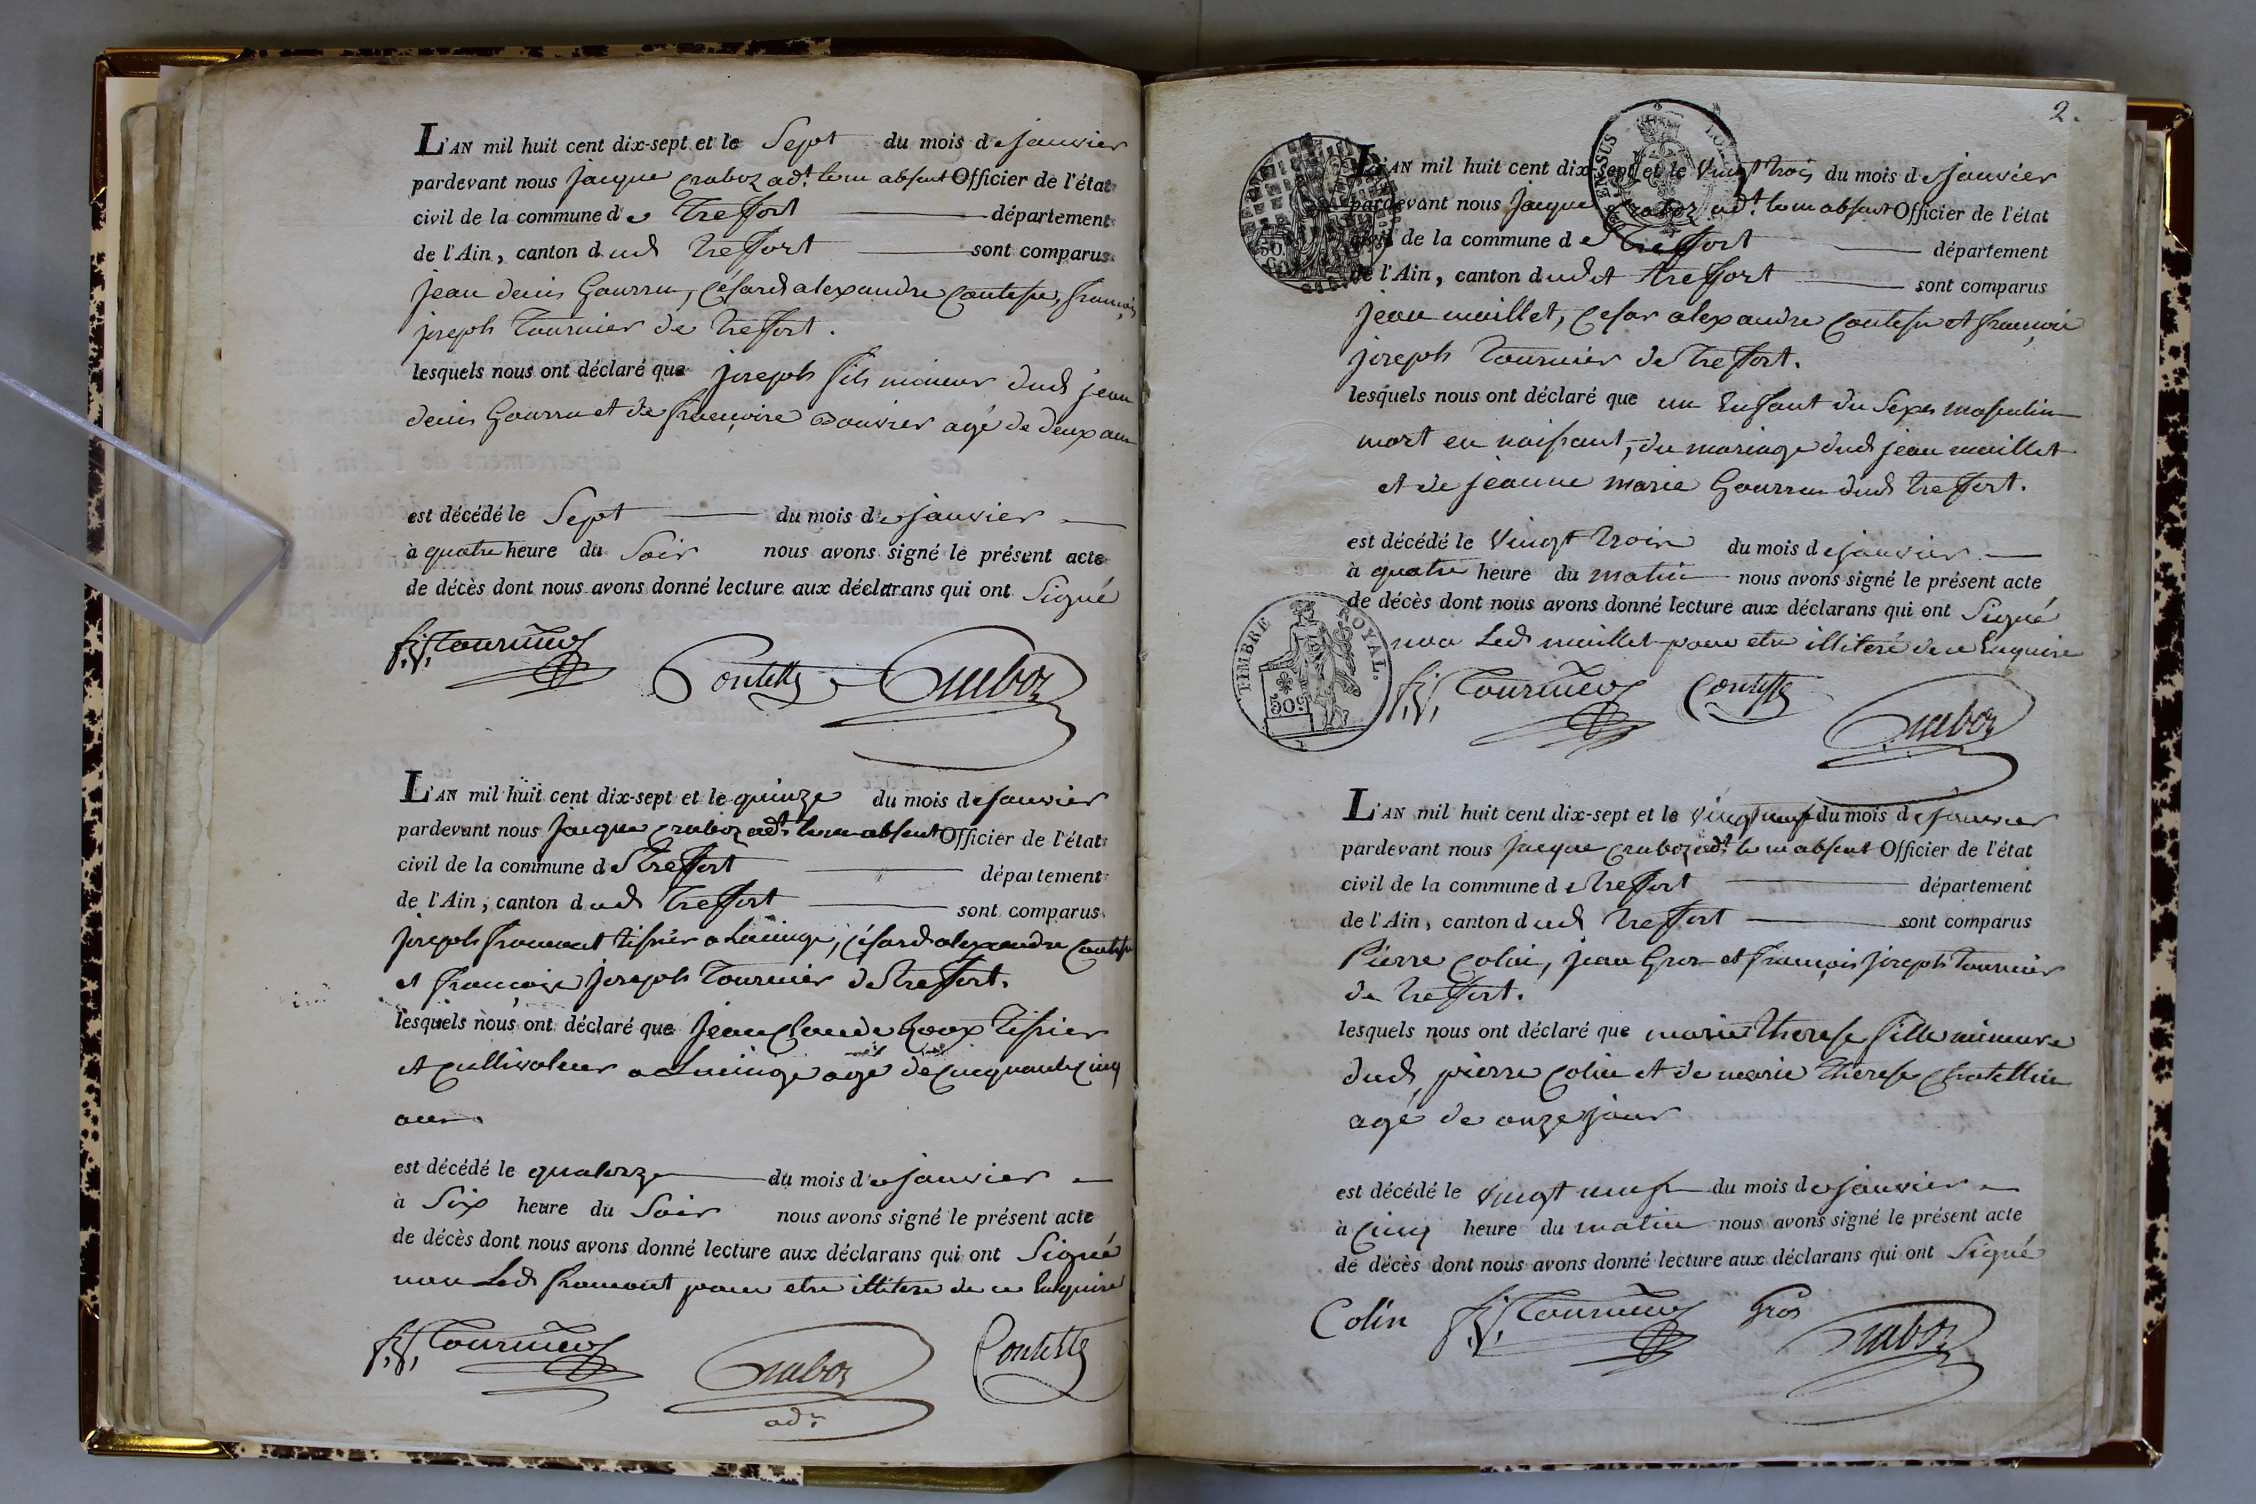 L'AN mil huit cent dix-sept et le Sept du mois de janvier
pardevant nous Jacque Craboz adt. le m absent Officier de l'état
civil de la commune de Treffort département
de l'Ain, canton dud. Treffort sont comparus
jean denis Gourru, Césard alexandre Coutesse, françois
joseph Tournier de treffort.
lesquels nous ont déclaré que joseph fils mineur dud. jean
denis Gourru et de françoise Bouvier agé de deux ans
est décédé le Sept du mois de janvier
à quatre heure du Soir nous avons signé le présent acte
de décès dont nous avons donné lecture aux déclarans qui ont Signé
f. j. Tournier Craboz
L'AN mil huit cent dix-sept et le quinze du mois de janvier
pardevant nous Jacque Craboz adt. le m absent Officier de l'état
civil de la commune de treffort département
de l'Ain, canton dud. treffort sont comparus
joseph fromont tissier a césard alexandre
et françois joseph Tournier de treffort.
lesquels nous ont déclaré que jean Claude Roux tissier
et cultivateur a agé de Cinquante Cinq
ans.
est décédé le quatorze du mois de janvier
à Six heure du Soir nous avons signé le présent acte
de décès dont nous avons donné lecture aux déclarans qui ont Signé
non Led. fromont pour etre illiteré de ce Enquire
f. j. Tournier Craboz
adt.
2.
L'AN mil huit cent dix-sept et le Vingt trois du mois de janvier
pardevant nous Jacque Craboz adt. le m absent Officier de l'état
civil de la commune de treffort département
de l'Ain, canton dudit treffort sont comparus
jean maillet, Cesar alexandre Coutesse et françois
joseph Tournier de treffort.
lesquels nous ont déclaré que un Enfant du Sexe masculin
mort en naissant, du mariage dud. jean maillet
et de jeanne marie Gourru dud. treffort.
est décédé le Vingt trois du mois de janvier
à quatre heure du matin nous avons signé le présent acte
de décès dont nous avons donné lecture aux déclarans qui ont Signé
TIMBRE ROYAL.
50C
non Led. maillet pour etre illiteré de ce Enquire
f. j. Tournier Craboz
L'AN mil huit cent dix-sept et le vingt neuf du mois de janvier
pardevant nous Jacque Craboz adt. le m absent Officier de l'état
civil de la commune de treffort département
de l'Ain, canton dud. treffort sont comparus
Pierre Colin, jean Gros et françois joseph tournier
de treffort.
lesquels nous ont déclaré que marie Therese fille mineure
dud. pierre Colin et de marie Therese Chatellin
agé de onze jour
est décédé le vingt neuf du mois de janvier
à Cinq heure du matin nous avons signé le présent acte
de décès dont nous avons donné lecture aux déclarans qui ont Signé
Colin f. j. Tournier Gros Craboz